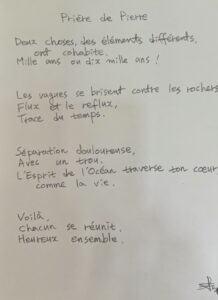 Prière de Pierre
Deux choses, des éléments différents,
ont cohabité.
Mille ans ou dix mille ans !
Les vagues se brisent contre les rochers
Flux et le reflux,
Trace du temps.
Séparation douloureuse,
Avec un trou.
L'Esprit de l'Océan traverse ton cœur
comme la vie.
Voilà,
Chacun se réunit,
Heureux ensemble.